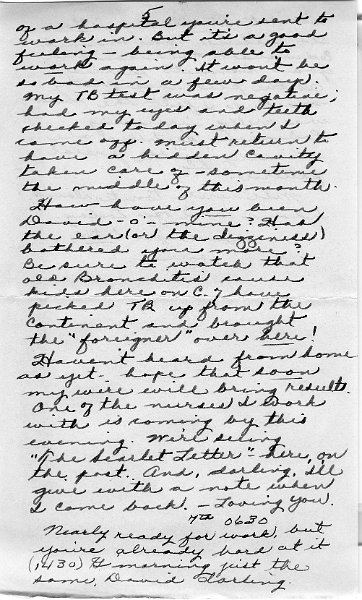 5
of a hospital you're sent to
work in. But it's a good
feeling - being able to
work again. It won't be
so bad in a few days.
My TB test was negative;
had my eyes and teeth
checked today when I
came off. Must return to
have a hidden cavity
taken care of - sometime
the middle of this month.
How have you been
David - o - mine? Has
the ear (or the dizziness)
bothered you more?
Be sure to watch that
old Bronchitis cause
kids here on C. 7 have
picked TB up from the
Contenant and brought
the "foreigner" over here!
Haven't heard from home
as yet - hope that soon
my wire will bring results.
One of the nurses I work
with is coming by this
evening. We're seeing
"The Scarlet Letter" - here, on
the post. And, darling, I'll
give with a note when
I come back. - Loving you.
7th 0630
Nearly ready for work, but
you're already hard at it
(1430) G morning just the
same, David Darling.